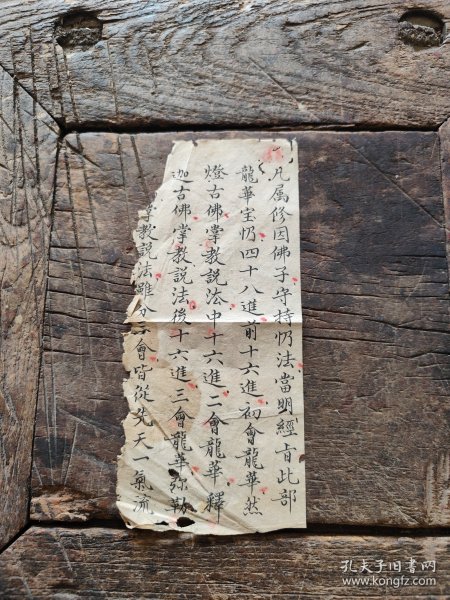 凡属修因佛子守持忉法當明經旨此部
龍華宝忉四十八進前十六進初會龍華然
燈古佛掌教説法中十六進二會龍華釋
迦古佛掌教説法後十六進三會龍華弥勒
掌教説法雖分三會皆從先天一氣流
孔夫子旧书网
www.kongfz.com